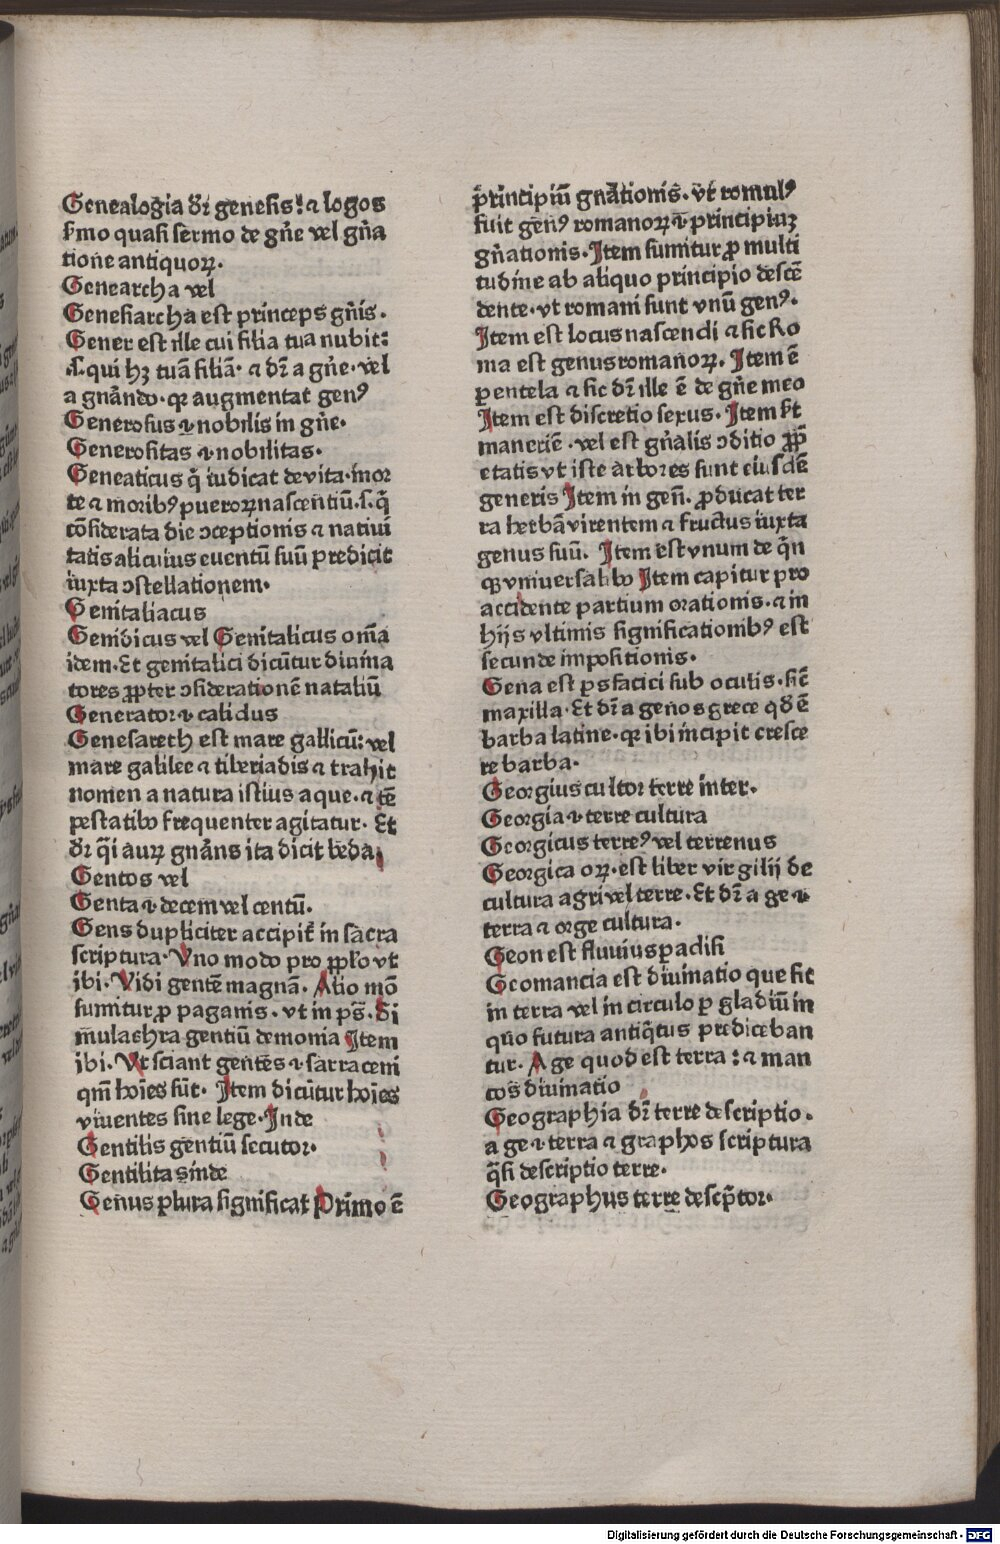 Genealogia dr̄ genesis! ⁊ logos
ẜmo quasi sermo de gn̄e vel gn̄a
tione antiquoꝝ.
Genearcha vel
Genesiarcha est princeps gn̄is.
Gener est ille cui filia tua nubit:
.s̄. qui hꝫ tuā filiā. ⁊ dr̄ a gn̄e. vel
a gnādo. qꝛ augmentat genꝰ
Generosus .i. nobilis in gn̄e.
Generositas .i. nobilitas.
Geneaticus q̄ iudicat de vita. mor
te ⁊ moribꝰ pueroꝝ nascentiū. s. q̄
cōsiderata die ↄceptionis ⁊ natiui
tatis alicuius euentū suū predicit
iuxta ↄstellationem.
Genitaliacus
Genidicus vel Genitalicus om̄ia
idem. Et genitalici dicūtur diuina
tores ꝓpter ↄsiderationē nataliū
Generator .i. calidus
Genesareth est mare gallicū: vel
mare galilee ⁊ tiberiadis ⁊ trahit
nomen a natura istius aque. ⁊ tē
pestatibꝰ frequenter agitatur. Et
dr̄ q̄i aurꝫ gnān̄s ita dicit beda.
Gentos vel
Genta .i. decem vel centū.
Gens dupliciter accipit̄ in sacra
scriptura. Vno modo pro pp̄lo vt
ibi. Vidi gentē magnā. Alio mō
sumitur ꝓ paganis. vt in ps̄. Si
mulachra gentiū demonia Item
ibi. Vt sciant gentes .i. sarraceni
qm̄ hoīes sūt. Item dicūtur hoīes
viuentes sine lege. Inde
Gentilis gentiū secutor.
Gentilitas inde
Genus plura significat Primo ē
principiū gn̄ationis. vt romulꝰ
fuit genꝰ romanoꝝ .i. principiuꝫ
gn̄ationis. Item sumitur ꝓ multi
tudine ab aliquo principio descē
dente. vt romani sunt vnū genꝰ.
Item est locus nascendi ⁊ sic Ro
ma est genus romanoꝝ. Item ē
pentela ⁊ sic dr̄ ille ē de gn̄e meo
Item est discretio sexus. Item ẜt
maneriē. vel est gn̄alis ↄditio ꝓp̄
etatis vt iste arbores sunt eiusdē
generis Item in geñ. ꝓducat ter
ra herbā virentem ⁊ fructus iuxta
genus suū. Item est vnum de q̄n
qꝫ vniuersalibꝰ Item capitur pro
accidente partium orationis. ⁊ in
hijs vltimis significationibꝰ est
secunde impositionis.
Gena est ps faciei sub oculis. siē
maxilla. Et dr̄ a genos grece qd̄ ē
barba latine. qꝛ ibi incipit cresce
re barba.
Georgius cultor terre inter.
Georgia .i. terre cultura
Georgicus terreꝰ vel terrenus
Georgica oꝝ. est liber virgilij de
cultura agri vel terre. Et dr̄ a ge .i.
terra ⁊ orge cultura.
Geon est fluuius padisi
Geomancia est diuinatio que fit
in terra vel in circulo p gladiū in
quo futura antiq̄tus prediceban
tur. A ge quod est terra: ⁊ man
tos diuinatio
Geographia dr̄ terre descriptio.
a ge .i. terra ⁊ graphos scriptura
q̄si descriptio terre.
Geographus terre descp̄tor.
Digitalisierung gefördert durch die Deutsche Forschungsgemeinschaft - DFG